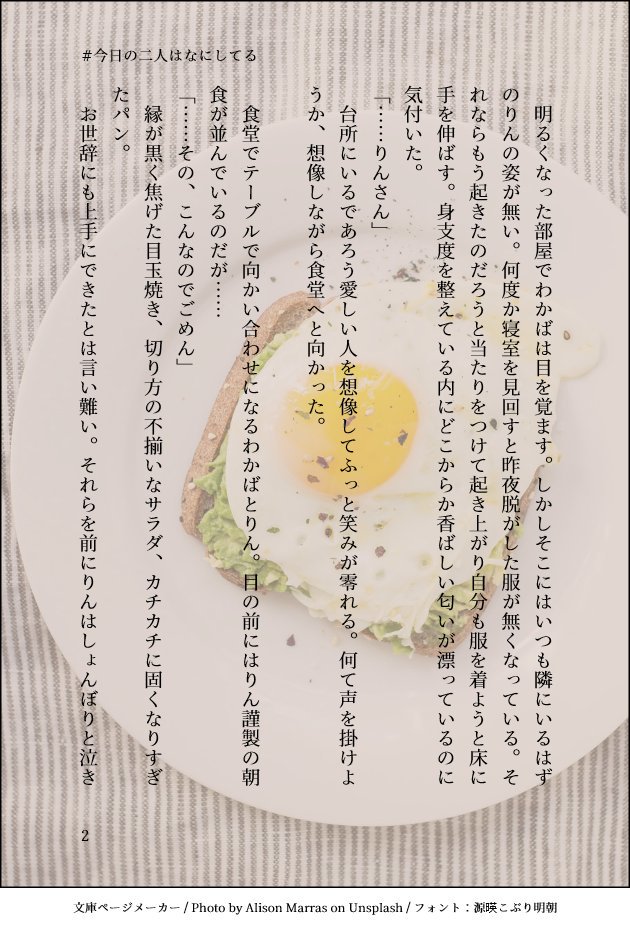 #今日の二人はなにしてる
明るくなった部屋でわかばは目を覚ます。しかしそこにはいつも隣にいるはず
のりんの姿が無い。何度か寝室を見回すと昨夜脱がした服が無くなっている。そ
れならもう起きたのだろうと当たりをつけて起き上がり自分も服を着ようと床に
手を伸ばす。身支度を整えている内にどこからか香ばしい匂いが漂っているのに
気付いた。
「……りんさん」
台所にいるであろう愛しい人を想像してふっと笑みが零れる。何て声を掛けよ
うか、想像しながら食堂へと向かった。
食堂でテーブルで向かい合わせになるわかばとりん。目の前にはりん謹製の朝
食が並んでいるのだが……
「……その、こんなのでごめん」
縁が黒く焦げた目玉焼き、切り方の不揃いなサラダ、カチカチに固くなりすぎ
たパン。
お世辞にも上手にできたとは言い難い。それらを前にりんはしょんぼりと泣き
2
文庫ページメーカー / Photo by Alison Marras on Unsplash / フォント：源暎こぶり明朝